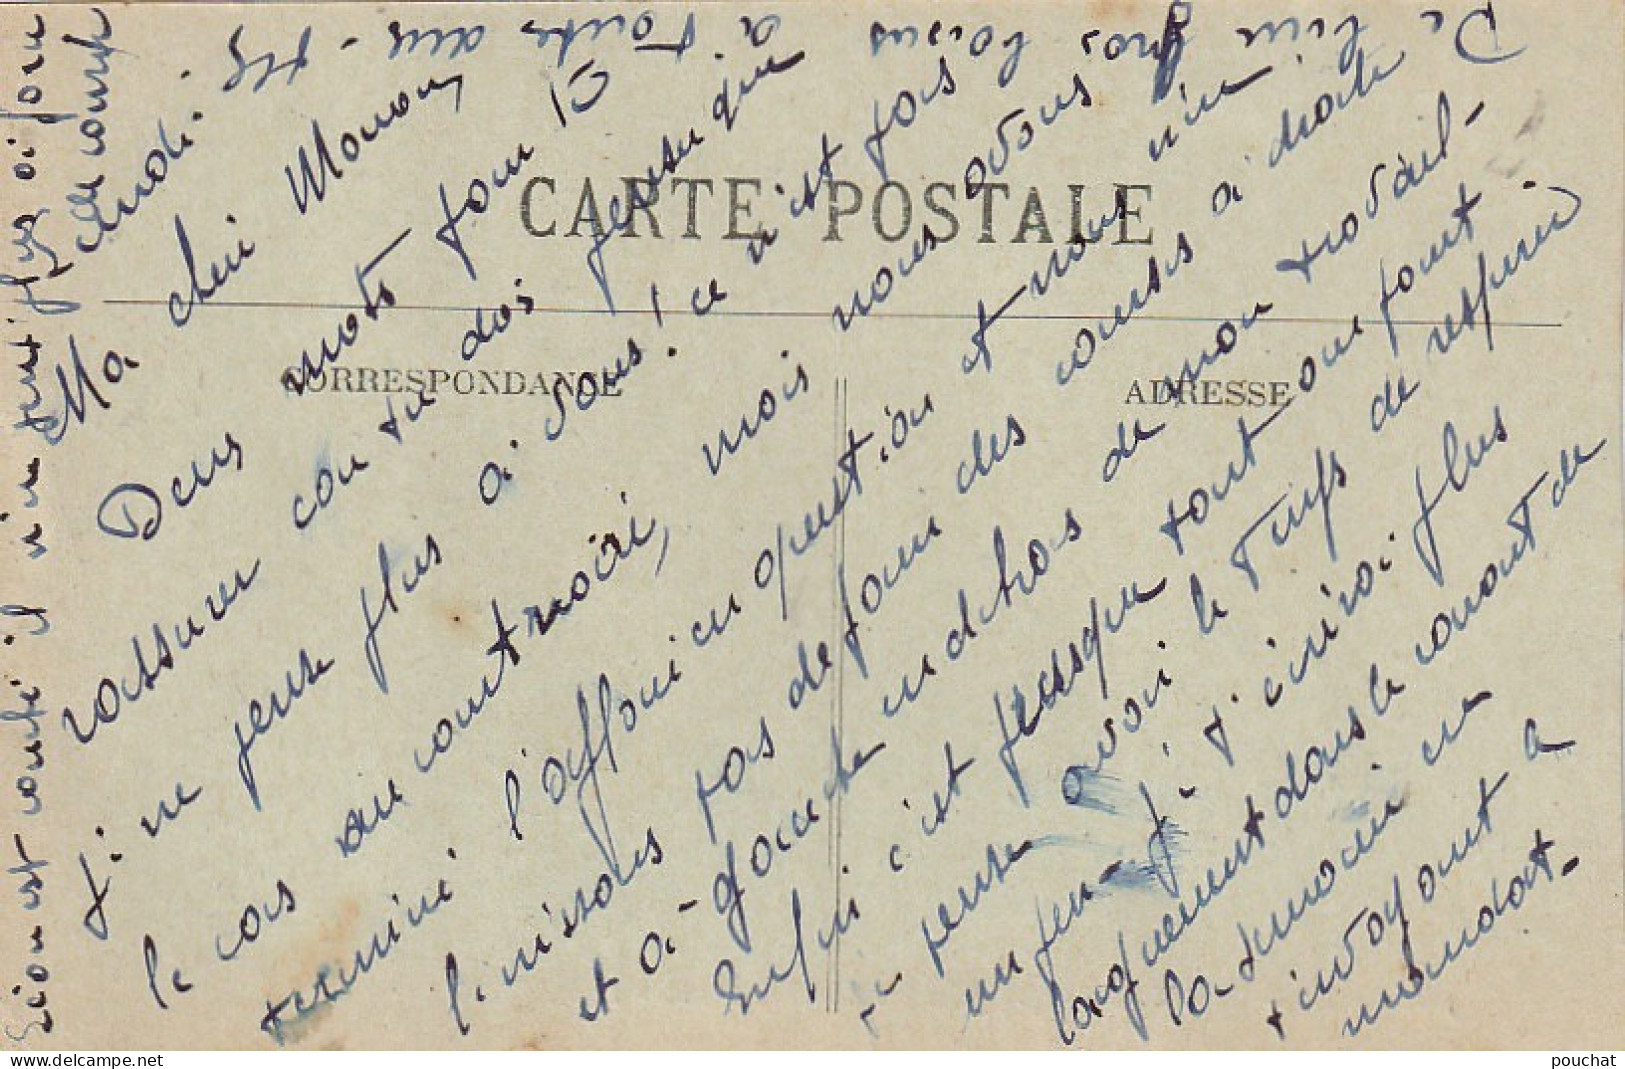 CARTE POSTALE
CORRESPONDANCE
ADRESSE
Lundi.
Ma cheri Maman,
Deux mots pour te
rassurer car tu dois penser que
je ne pense plus à vous! ce n'est pas
le cas au contraire, mais nous avons
terminé l'affaire en question et nous ne
finissons pas de faire des courses à droite
et à gauche en dehors de mon travail.
Enfin c'est presque tout on font
je pense avoir le temps de respirer
un peu. je t'écrirai plus
longuement dans le courant de
la semaine en
t'envoyant le
mandat.
De bien gros baisers
à toutes deux.
Léon est couché il vient tard
de course
pouchat